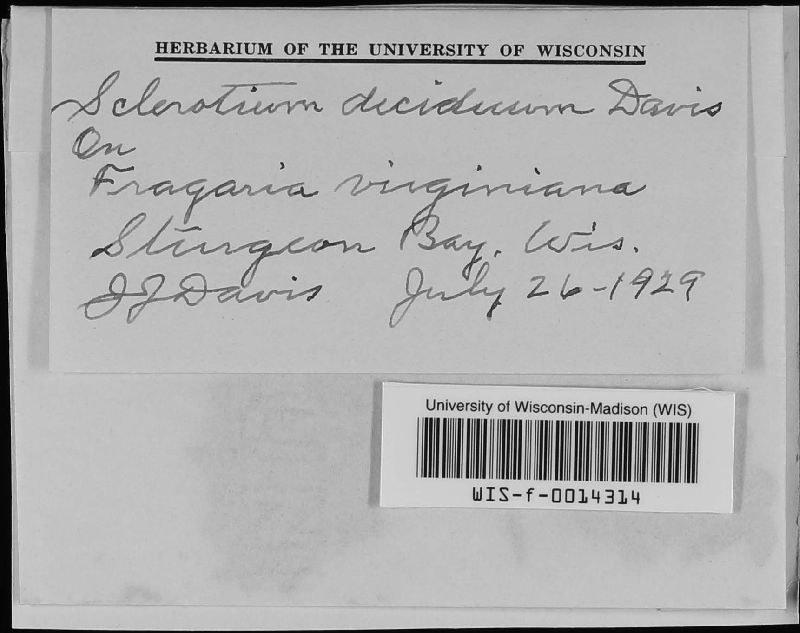 HERBARIUM OF THE UNIVERSITY OF WISCONSIN
Sclerotium deciduum Davis
On
Fragaria virginiana
Sturgeon Bay, Wis.
JJ Davis July 26-1929
University of Wisconsin-Madison (WIS)
WIS-f-0014314